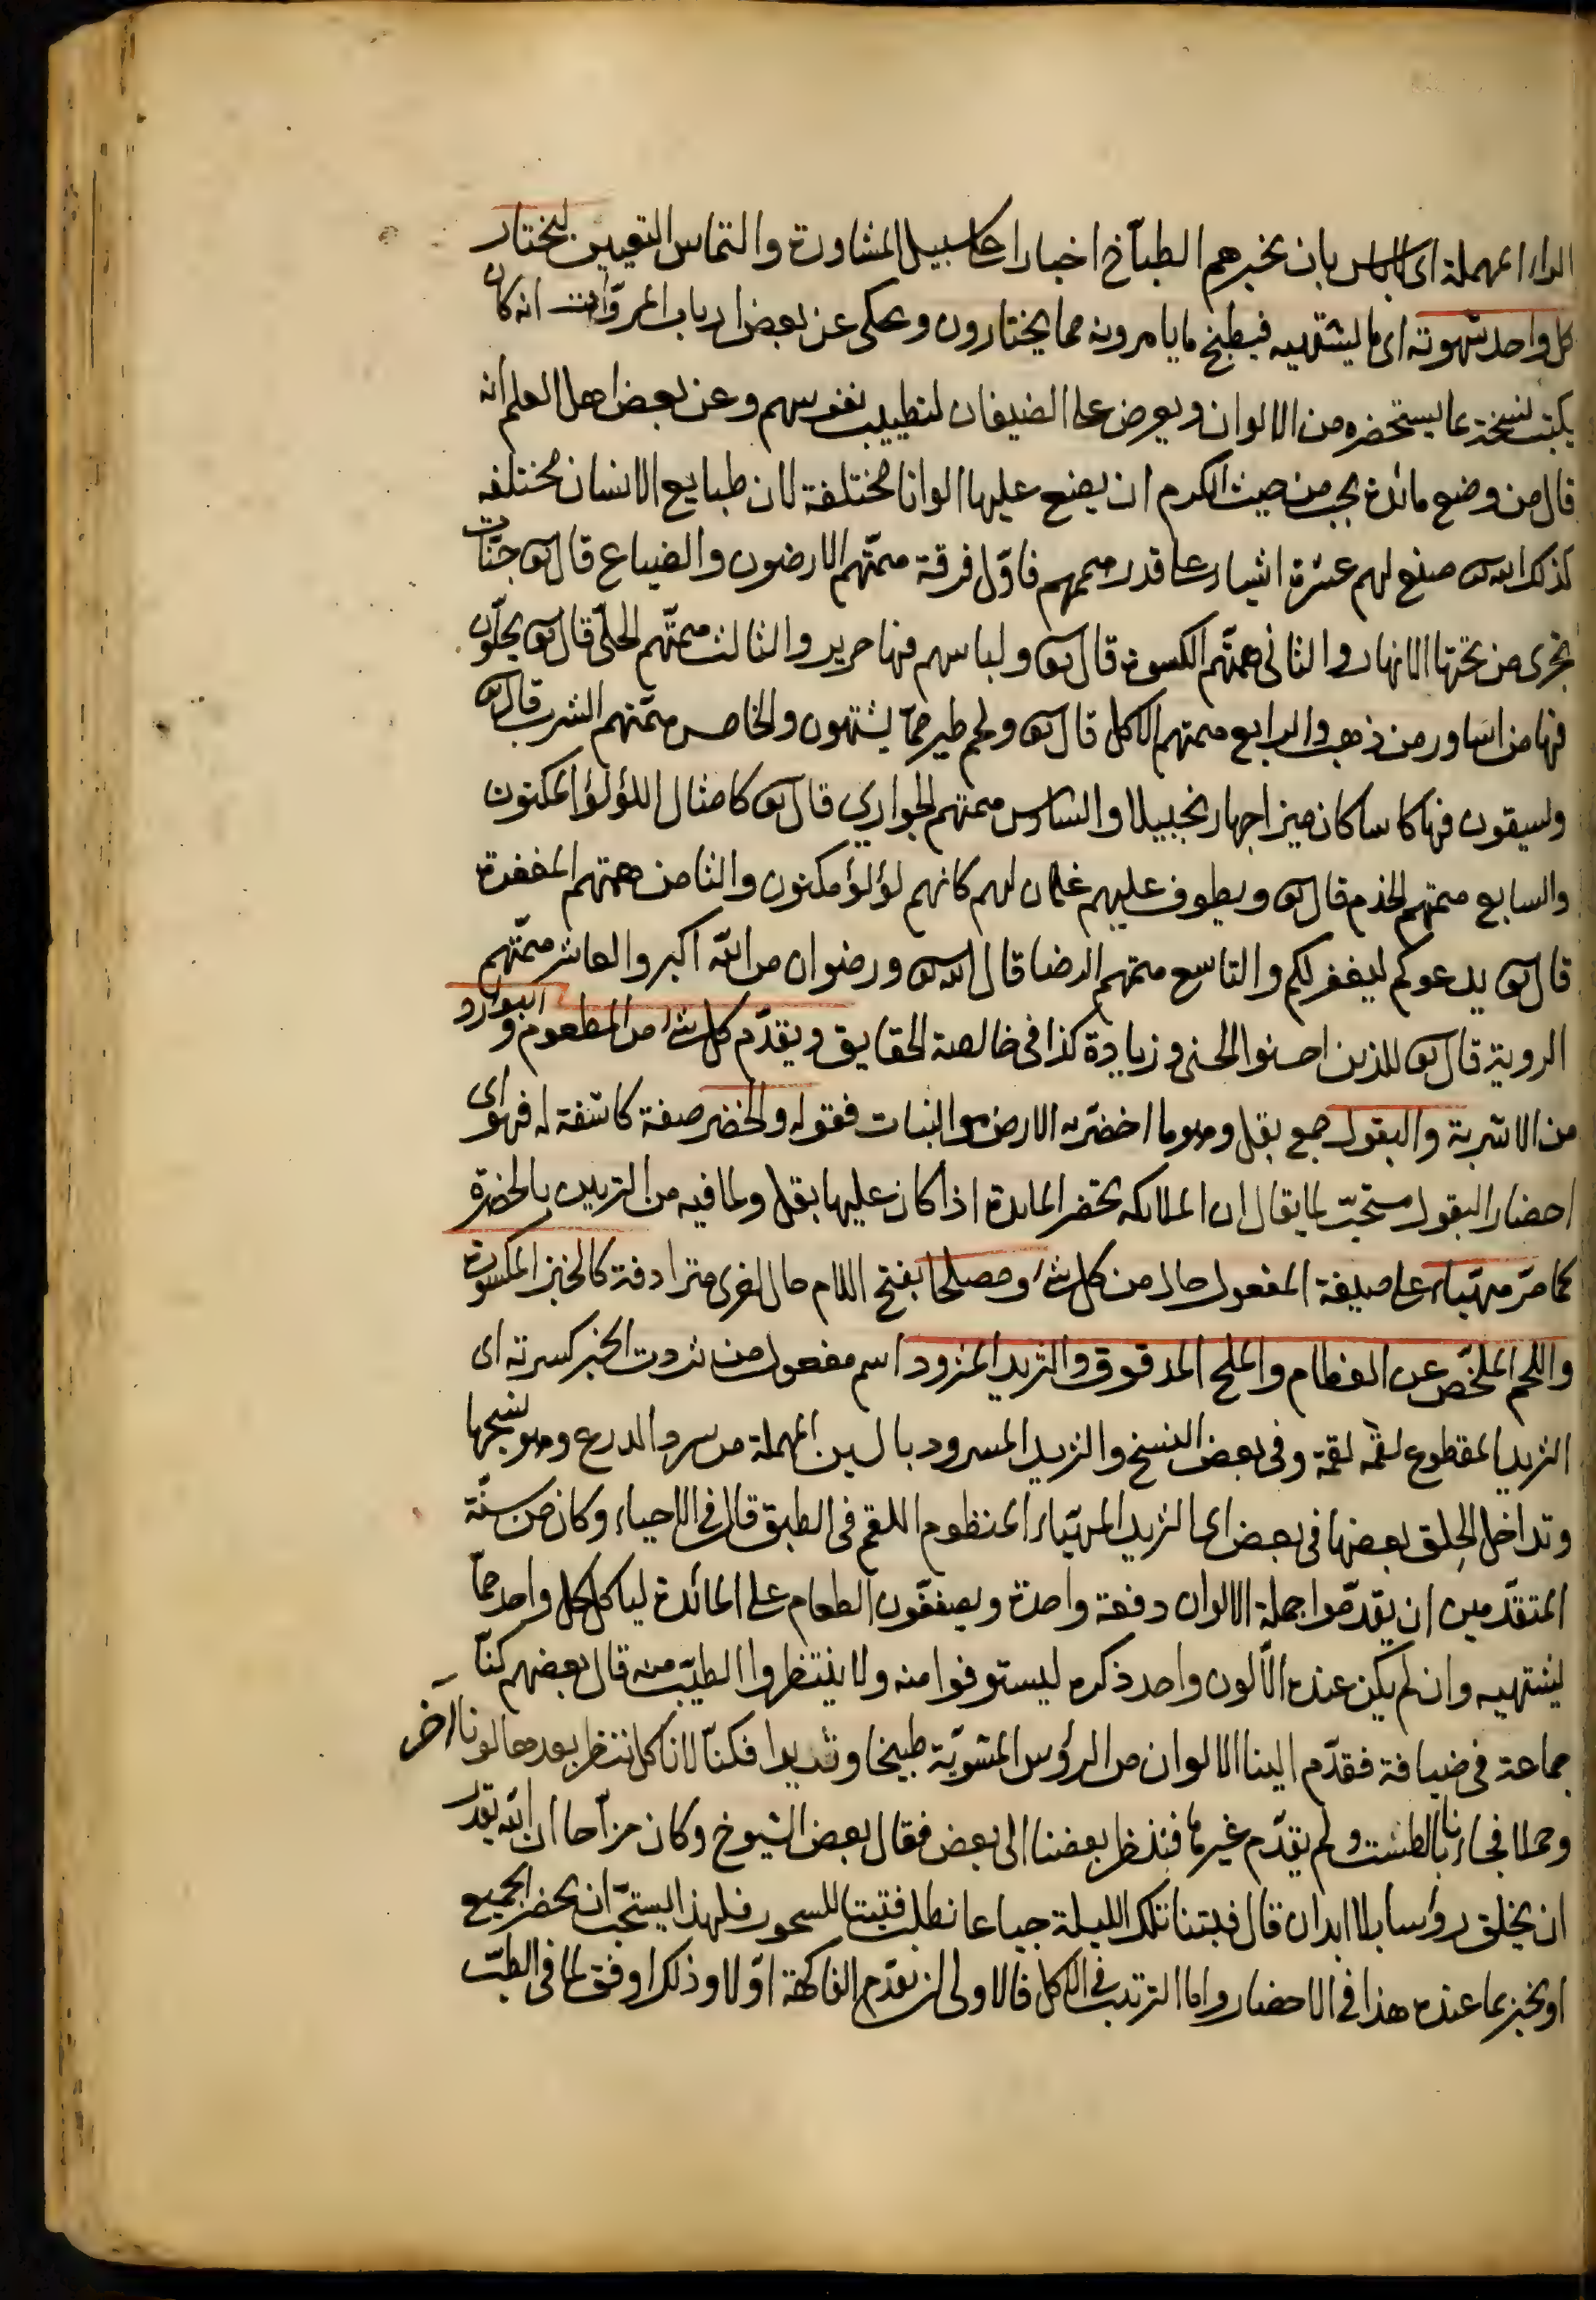 الراء المهملة اى الناس بان يخبرهم الطبآخ اخبارا على سبيل المشاورة والتماس التعيين ليختار
كل واحد شهوته اى ما يشتهيه فيطبخ ما يامرونه مما يختارون ويحكى عن بعض ارباب المروّات انه كان
يكتب نسخة بما يستحضره من الالوان ويعرض على الضيفان لتطييب نفوسهم وعن بعض اهل العلم انه
قال من وضع مائدة يجب من حيث الكرم ان يضع عليها الوانا مختلفة لان طبايع الانسان مختلفه
كذلك الله تع صنع لهم عشرة اشياء على قدر هممهم فاوّل فرقة همّتهم الارضون والضياع قال تع جنّات
تجرى من تحتها الانهار والثانى همتهم الكسوة قال تع ولباسهم فيها حرير والثالث همتّهم الحلّى قال تع يحلّون
فيها من اساور من ذهب والرابع همتهم الاكل قال تع ولحم طير ممّا يشتهون والخامس همّتهم الشرب قال تع
ويسقون فيها كاسا كان مزاجها زنجبيلا والسادس همتهم الجوارى قال تع كامثال اللؤلؤ المكنون
والسابع همتهم الخدم قال تع ويطوف عليهم غلمان لهم كانهم لؤلؤ مكنون والثامن همتهم المغفرة
قال تع يدعوكم ليغفر لكم والتاسع همتهم الرضا قال الله تع ورضوان من الله اكبر والعاشر همّتهم
الروية قال تع للذين احسنوا الحسنى وزيادة كذا فى خالصة الحقايق ويقدّم كل شئ من المطعوم والبوارد
من الاشربة والبقول جمع بقل وهو ما اخضرّ به الارض من النبات فقوله والخضر صفة كاشفة له فهو اى
احضار البقول مستحبّ لما يقال ان الملائكه تحضر المايدة اذا كان عليها بقل ولما فيه من التزيين بالخضرة
كما مرّ مهيّاء على صيغة المفعول حال من كل شئ ومصلحا بفتح اللام حال اخرى مترادفة كالخبز المكسورة
واللحم الملخّص عن العظام والملح المدقوق والثريد المثرود اسم مفعول من ثردت الخبز كسرته اى
الثريد المقطوع لقمة لقمة وفى بعض النسخ والثريد المسرود بالسين المهملة من سرد الدرع وهو نسجها
وتداخل الحلق بعضها فى بعض اى الثريد المهيّاء المنظوم اللقم فى الطبق قال فى الاحياء وكان من سنّة
المتقدّمين ان يقدّموا جملة الالوان دفعة واحدة ويصففّون الطعام على المائدة لياكل كل واحد ممّا
يشتهيه وان لم يكن عنده الّا لون واحد ذكره ليستوفوا منه ولا ينتظروا اطيب منه قال بعضهم كنّا
جماعة فى ضيافة فقدّم الينا الالوان من الرؤس المشويّة طبيخا وثريدا فكنّا لا ناكل ننتظر بعدها لونا آخر
وحملا فجاءنا بالطشت ولم يقدّم غيرها فنظر بعضنا الى بعض فقال بعض الشيوخ وكان مزّاحا ان الله يقدر
ان يخلق رؤسا بلا ابدان قال فبتنا تلك الليلة جياعا نطلب فتيتا للسحور فلهذا يستحبّ ان يحضر الجميع
او يخبر بما عنده هذا فى الاحضار واما الترتيب فى الاكل فالاولى ان يقدّم الفاكهة اوّلا وذلك اوفق لما فى الطبّ